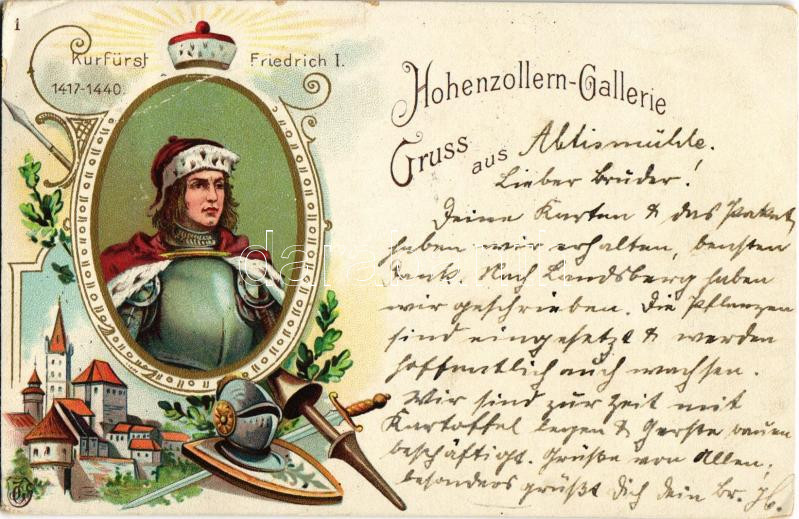 1
Kurfürst Friedrich I.
1417-1440.
Hohenzollern-Gallerie
Gruss aus Abtismühle.
Lieber Bruder!
Deine Karten & das Paket
haben wir erhalten, bensten
dank. Nach Landsberg haben
wir geschrieben. Die Pflanzen
sind eingesetzt & werden
hoffentlich auch wachsen.
Wir sind zur Zeit mit
Kartoffel legen & Gerste bauen
beschäftigt. Grüße von Allen,
besonders grüßt Dich dein Br.